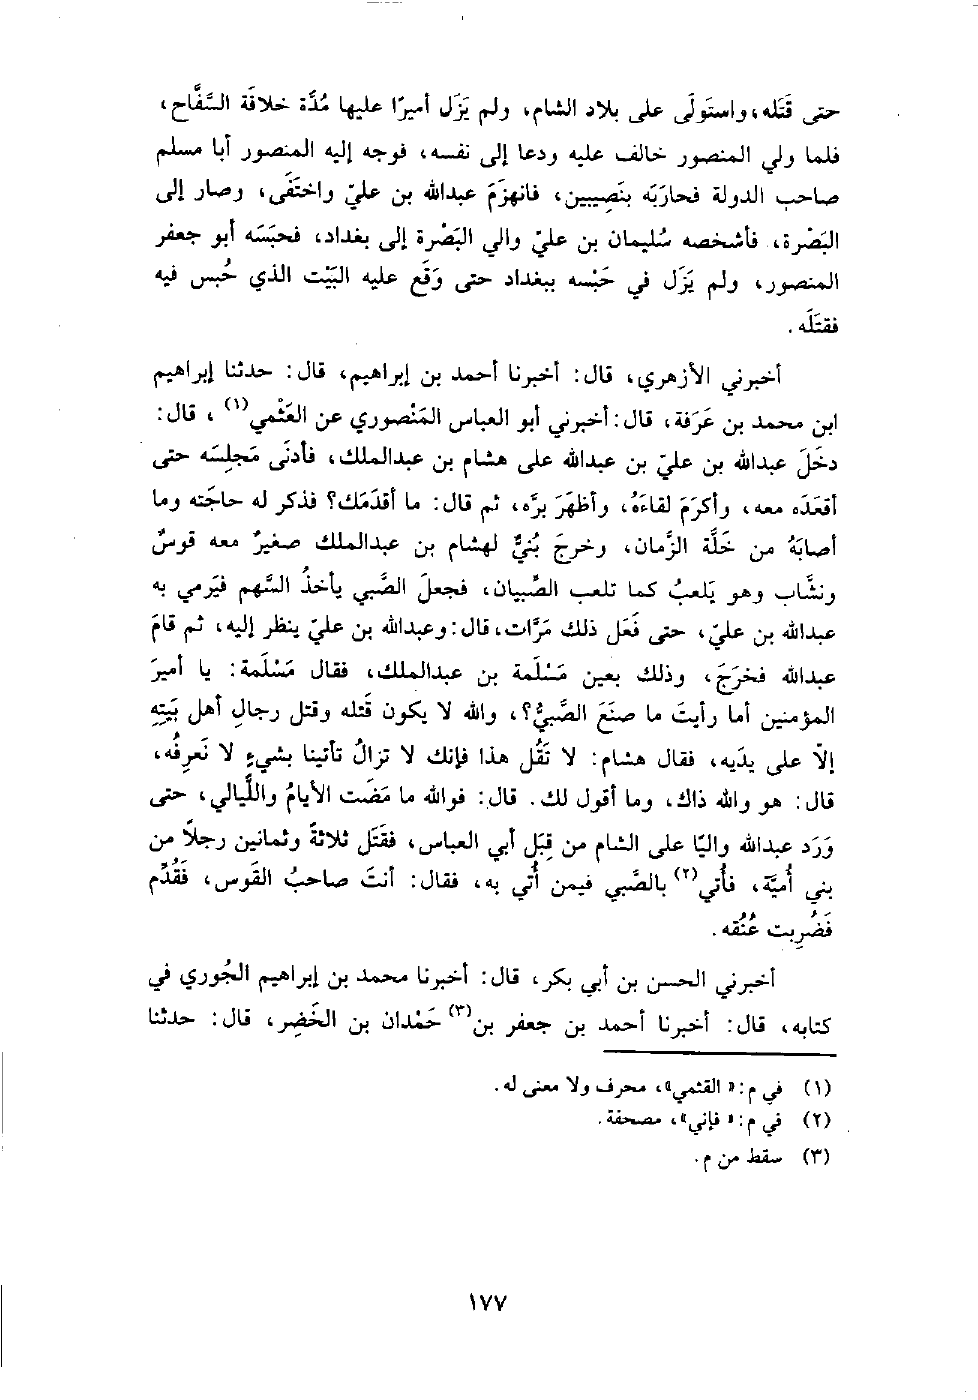 حتى قَتَله، واستَولَى على بلاد الشام، ولم يَزَل أميرًا عليها مُدَّة خلافَة السَّفَّاح،
فلما ولي المنصور خالف عليه ودعا إلى نفسه، فوجه إليه المنصور أبا مسلم
صاحب الدولة فحارَبَه بنَصِيبين، فانهزَمَ عبدالله بن عليّ واختَفَى، وصار إلى
البَصْرة، فأشخصه سُليمان بن عليّ والي البَصْرة إلى بغداد، فحبَسَه أبو جعفر
المنصور، ولم يَزَل في حَبْسه ببغداد حتى وَقَع عليه البَيْت الذي حُبس فيه
فقتَلَه.
أخبرني الأزهري، قال: أخبرنا أحمد بن إبراهيم، قال: حدثنا إبراهيم
ابن محمد بن عَرَفة، قال: أخبرني أبو العباس المَنْصوري عن العَثْمي(١)، قال:
دخَلَ عبدالله بن عليّ بن عبدالله على هشام بن عبدالملك، فأدنَى مَجلِسَه حتى
أقعَدَه معه، وأكرَمَ لقاءَهُ، وأظهَرَ برَّه، ثم قال: ما أقدَمَك؟ فذكر له حاجَته وما
أصابَهُ من خَلَّة الزَّمان، وخرجَ بُنيٌّ لهشام بن عبدالملك صغيرٌ معه قوسٌ
ونشَّاب وهو يَلعبُ كما تلعب الصِّبيان، فجعلَ الصَّبي يأخذُ السَّهم فيَرمي به
عبدالله بن عليّ، حتى فَعَل ذلك مَرَّات، قال: وعبدالله بن عليّ ينظر إليه، ثم قامَ
عبدالله فخرَجَ، وذلك بعين مَسْلَمة بن عبدالملك، فقال مَسْلَمة: يا أميرَ
المؤمنين أما رأيتَ ما صنَعَ الصَّبيُّ؟، والله لا يكون قَتله وقتل رجالِ أهل بَيتِهِ
إلّا على يدَيه، فقال هشام: لا تَقُل هذا فإنك لا تزالُ تأتينا بشيءٍ لا نَعرِفُه،
قال: هو والله ذاك، وما أقول لك. قال: فوالله ما مَضَت الأيامُ واللَّيالي، حتى
وَرَد عبدالله واليًا على الشام من قِبَل أبي العباس، فقَتَل ثلاثةً وثمانين رجلًا من
بني أُميَّة، فأُتي(٢) بالصَّبي فيمن أُتي به، فقال: أنتَ صاحبُ القَوس، فَقُدِّم
فَضُرِبت عُنُقه.
أخبرني الحسن بن أبي بكر، قال: أخبرنا محمد بن إبراهيم الجُوري في
كتابه، قال: أخبرنا أحمد بن جعفر بن(٣) حَمْدان بن الخَضِر، قال: حدثنا
(١) في م: «القثمي»، محرف ولا معنى له.
(٢) في م: «فإني»، مصحفة.
(٣) سقط من م.
١٧٧